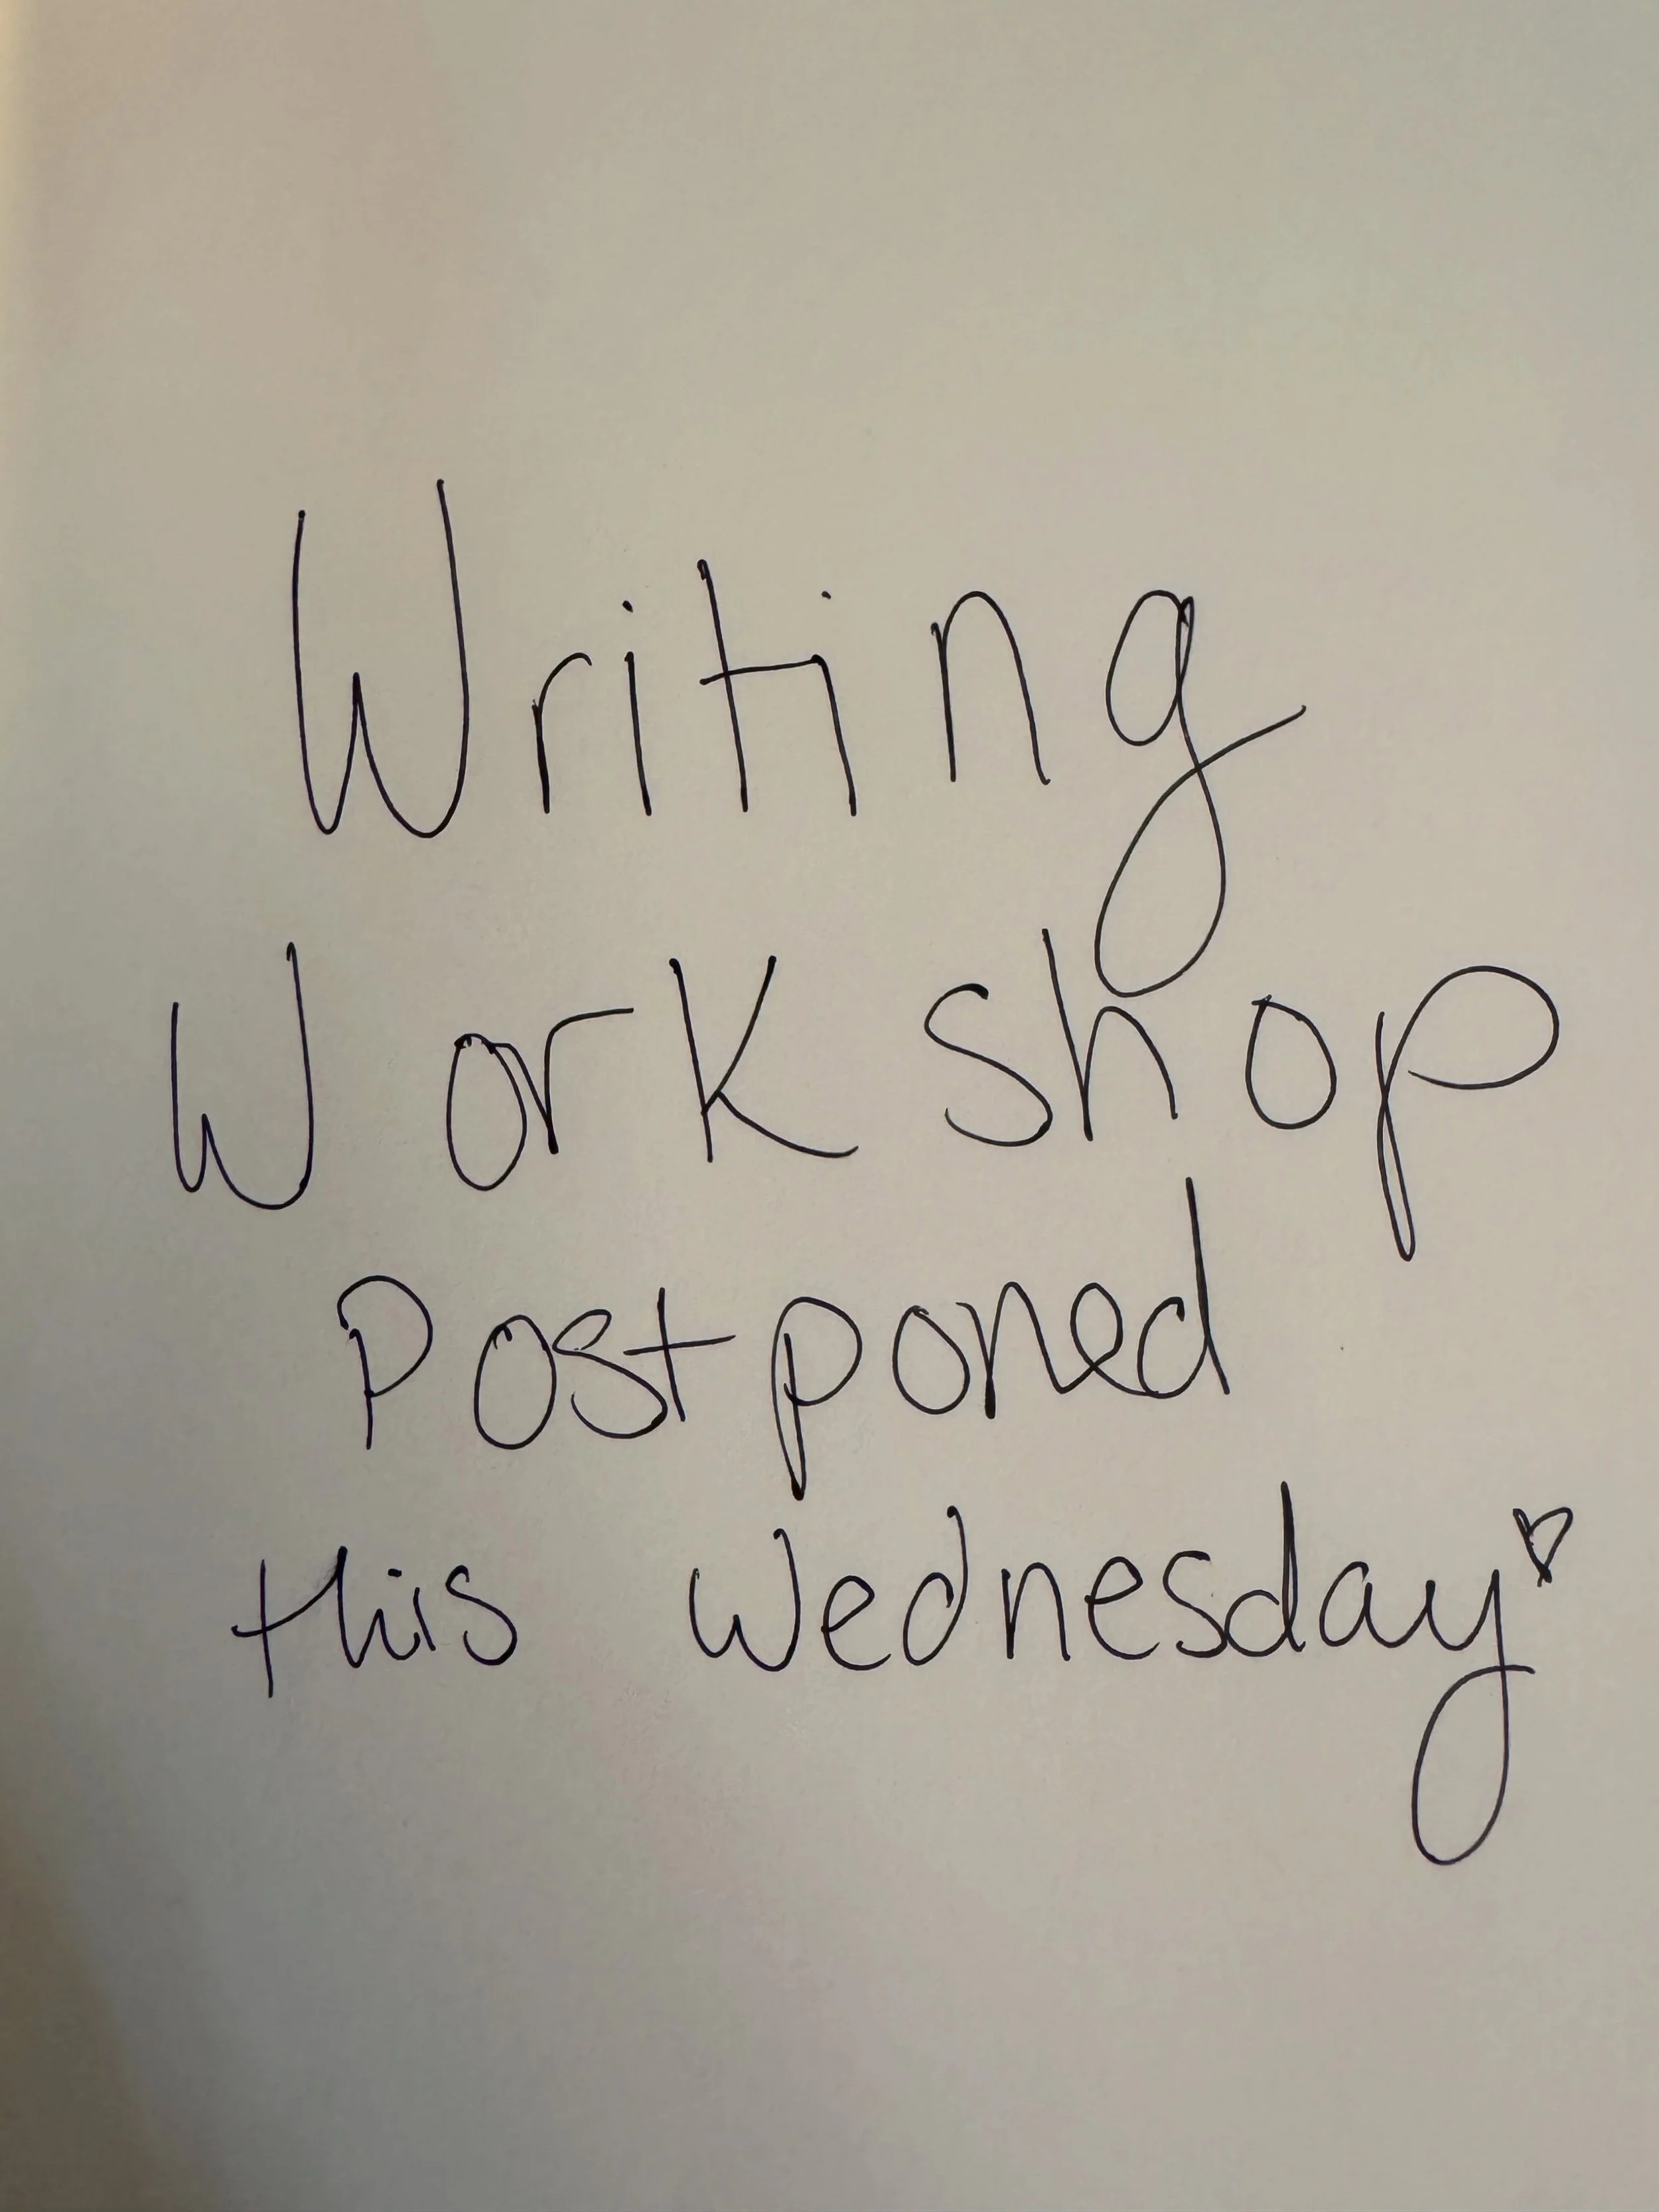 Writing
Work shop
Postponed
this Wednesday♡